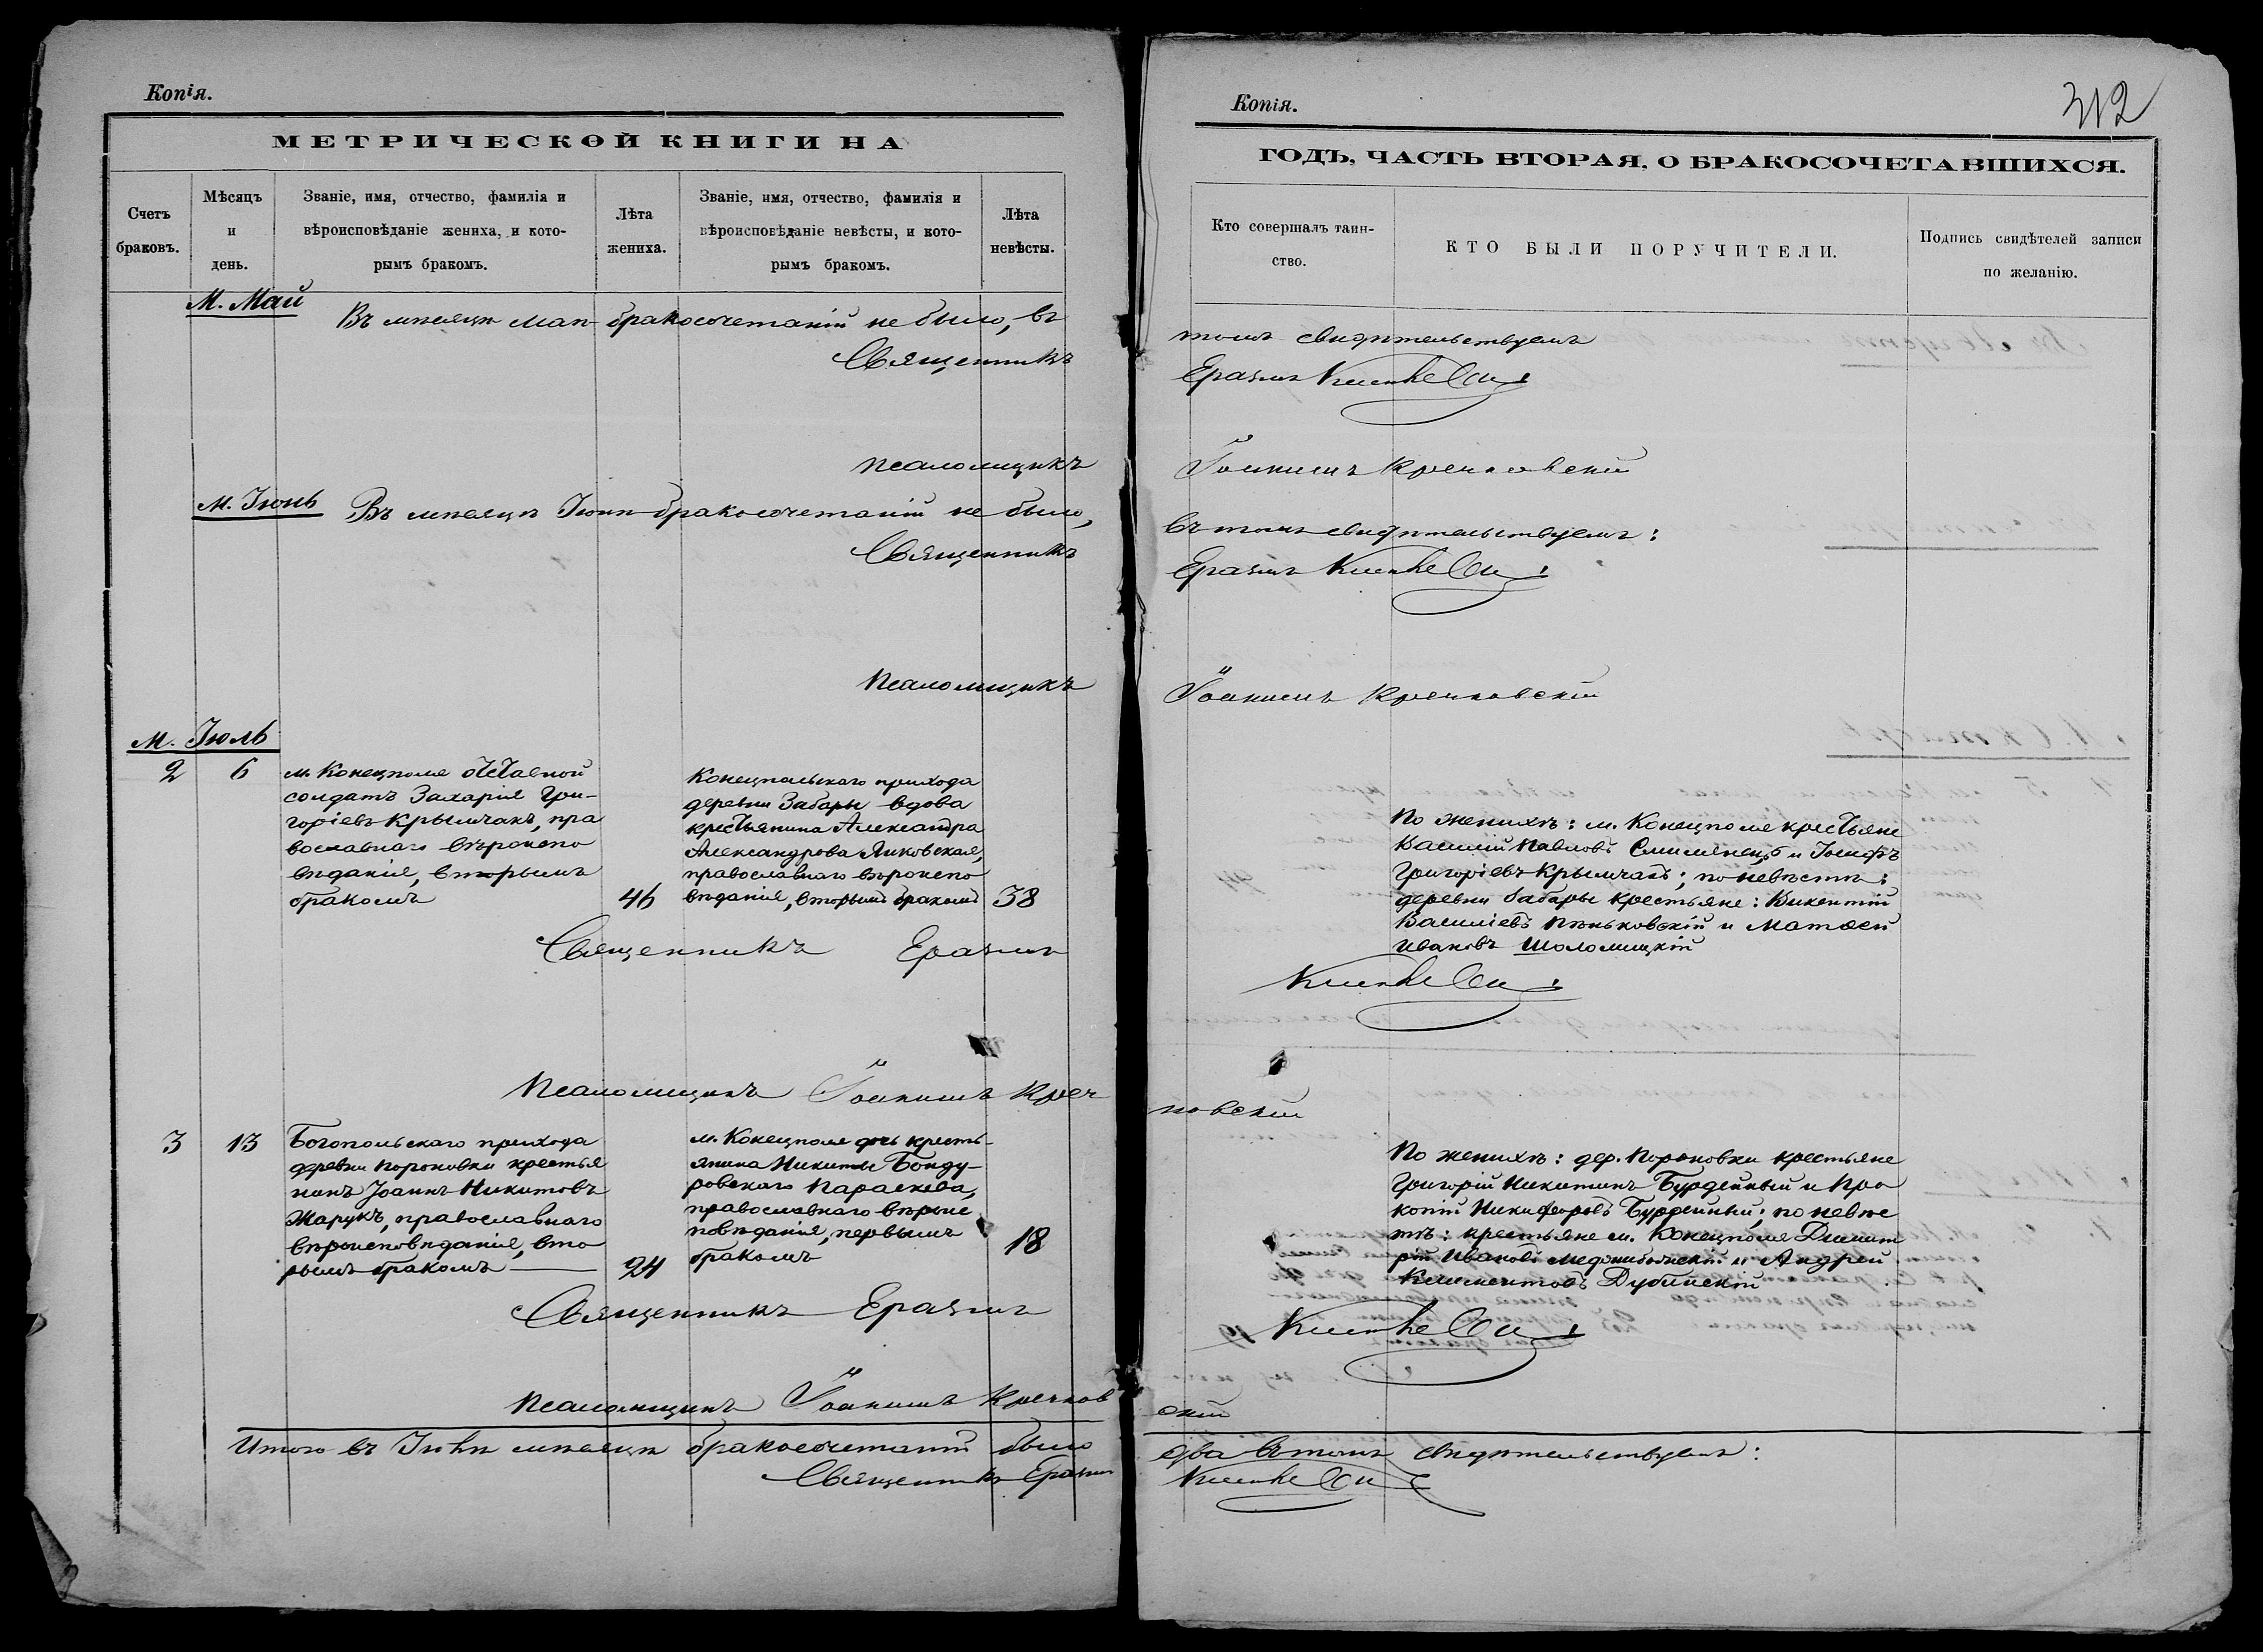 Копія.
МЕТРИЧЕСКОЙ КНИГИ НА
Счетъ браковъ.
Мѣсяцъ и день.
Званіе, имя, отчество, фамилія и
вѣроисповѣданіе жениха, и кото-
рымъ бракомъ.
Лѣта жениха.
Званіе, имя, отчество, фамилія и
вѣроисповѣданіе невѣсты, и кото-
рымъ бракомъ.
Лѣта невѣсты.
М. Май
Въ мѣсяцѣ Маѣ бракосочетаній не было, въ
Священникъ
Псаломщикъ
М. Іюнь
Въ мѣсяцѣ Іюнѣ бракосочетаній не было,
Священникъ
Псаломщикъ
М. Іюль
2
6
м. Конецполя отставной
солдатъ Захарія Гри-
горіевъ Крымчакъ, пра
вославнаго вѣроиспо
вѣданія, вторымъ
бракомъ
46
Конецпольскаго прихода
деревни Забары вдова
крестьянина Александра
Александрова Яиковская,
православнаго вѣроиспо
вѣданія, вторымъ бракомъ
38
Священникъ Еразмъ
Псаломщикъ Іоанникъ Креч
3
13
Богопольскаго прихода
деревни Пороновки крестья
нинъ Іоаннъ Никитовъ
Марукъ, православнаго
вѣроисповѣданія, вто
рымъ бракомъ
24
м. Конецполя дочь кресть-
янина Никиты Бонду-
ровскаго Параскева,
православнаго вѣроис
повѣданія, первымъ
бракомъ
18
Священникъ Еразмъ
Псаломщикъ Кречков
Итого въ Іюлѣ мѣсяцѣ бракосочетаній было
Священникъ Еразмъ
Копія.
312
ГОДЪ, ЧАСТЬ ВТОРАЯ, О БРАКОСОЧЕТАВШИХСЯ.
Кто совершалъ таин-
ство.
КТО БЫЛИ ПОРУЧИТЕЛИ.
Подпись свидѣтелей записи
по желанію.
томъ свидѣтельствуемъ
Еразмъ
Кречковскій
въ томъ свидѣтельствуемъ:
Еразмъ
Кречковскій
По женихѣ: м. Конецполя крестьяне
Василій Павловъ и Іосифъ
Григоріевъ Крымчакъ; по невѣстѣ:
деревни Забары крестьяне: Викентій
Василіевъ Пѣньковскій и Матѳей
Ивановъ Шоломицкій
ковскій
По женихѣ: дер. Пороновки крестьяне
Григорій Никитинъ Бурдейный и Про
копій Никифоровъ Бурдейный; по невѣс
тѣ: крестьяне м. Конецполя Димит
рій Ивановъ Меджибожскій и Андрей
Климентовъ Дубинскій
скій
два въ томъ свидѣтельствуемъ: